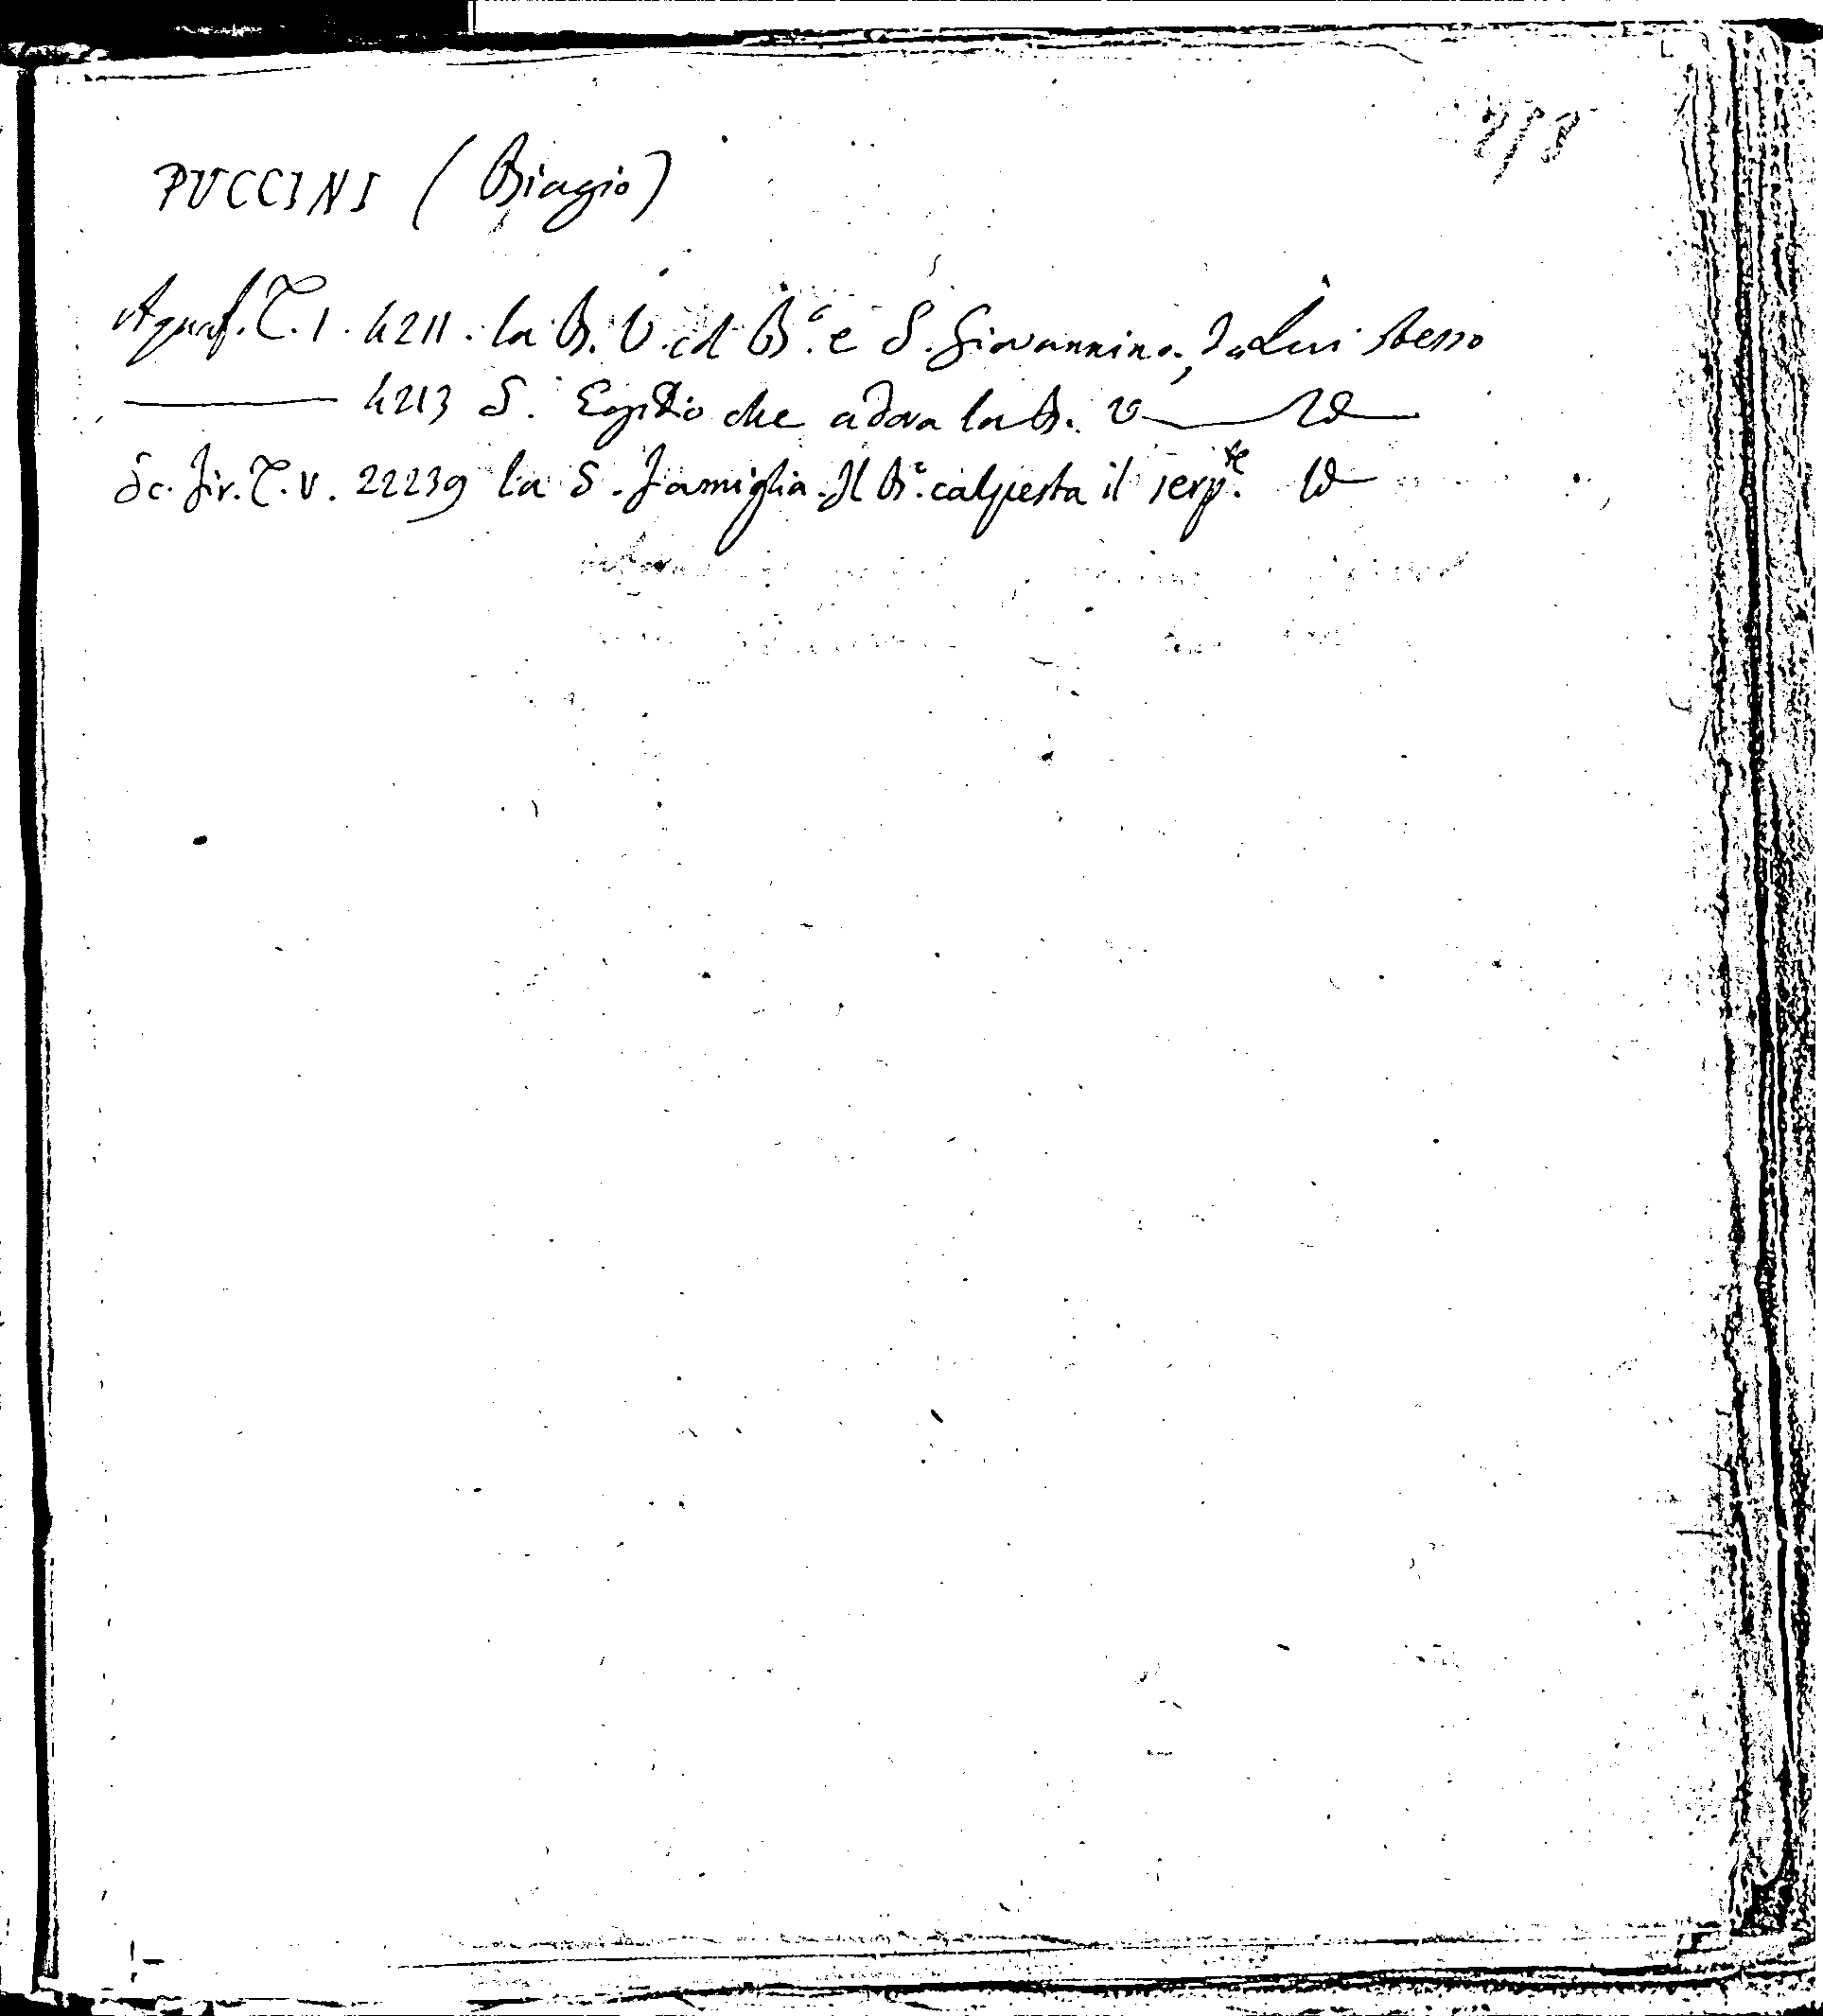 PUCCINI (Biagio)
Aquaf. T. 1. 4211. la B. V. col B.º e S. Giovannino, da Lui stesso
4213 S. Egidio che adora la B. V Id
Sc. Fir. T. V. 22239 la S. Famiglia. Il B.º calpesta il serp.te Id